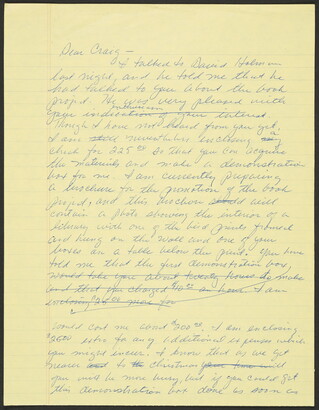 Dear Craig –
I talked to David Holman
last night, and he told me that he
had talked to you about the book
project. He was very pleased with
your indication of your interest.
Though I have not heard from you yet,
I am nevertheless enclosing a
check for 225.00 so that you can acquire
the materials and make a demonstration
box for me. I am currently preparing
a brochure for the promotion of the book
project, and this brochure will
contain a photo showing the interior of a
library with one of the bird prints framed
and hung on the wall and one of your
boxes on a table below the print. You have
told me that the first demonstration box,
would take you about twenty hours to make
and that you charged $10.00 an hour. I am
enclosing $25.00 more for
would cost me about $200.00. I am enclosing
25.00 extra for any additional expenses which
you might incur. I know that as we get
nearer to Christmas
you must be more busy, but if you could get
this demonstration box done as soon as